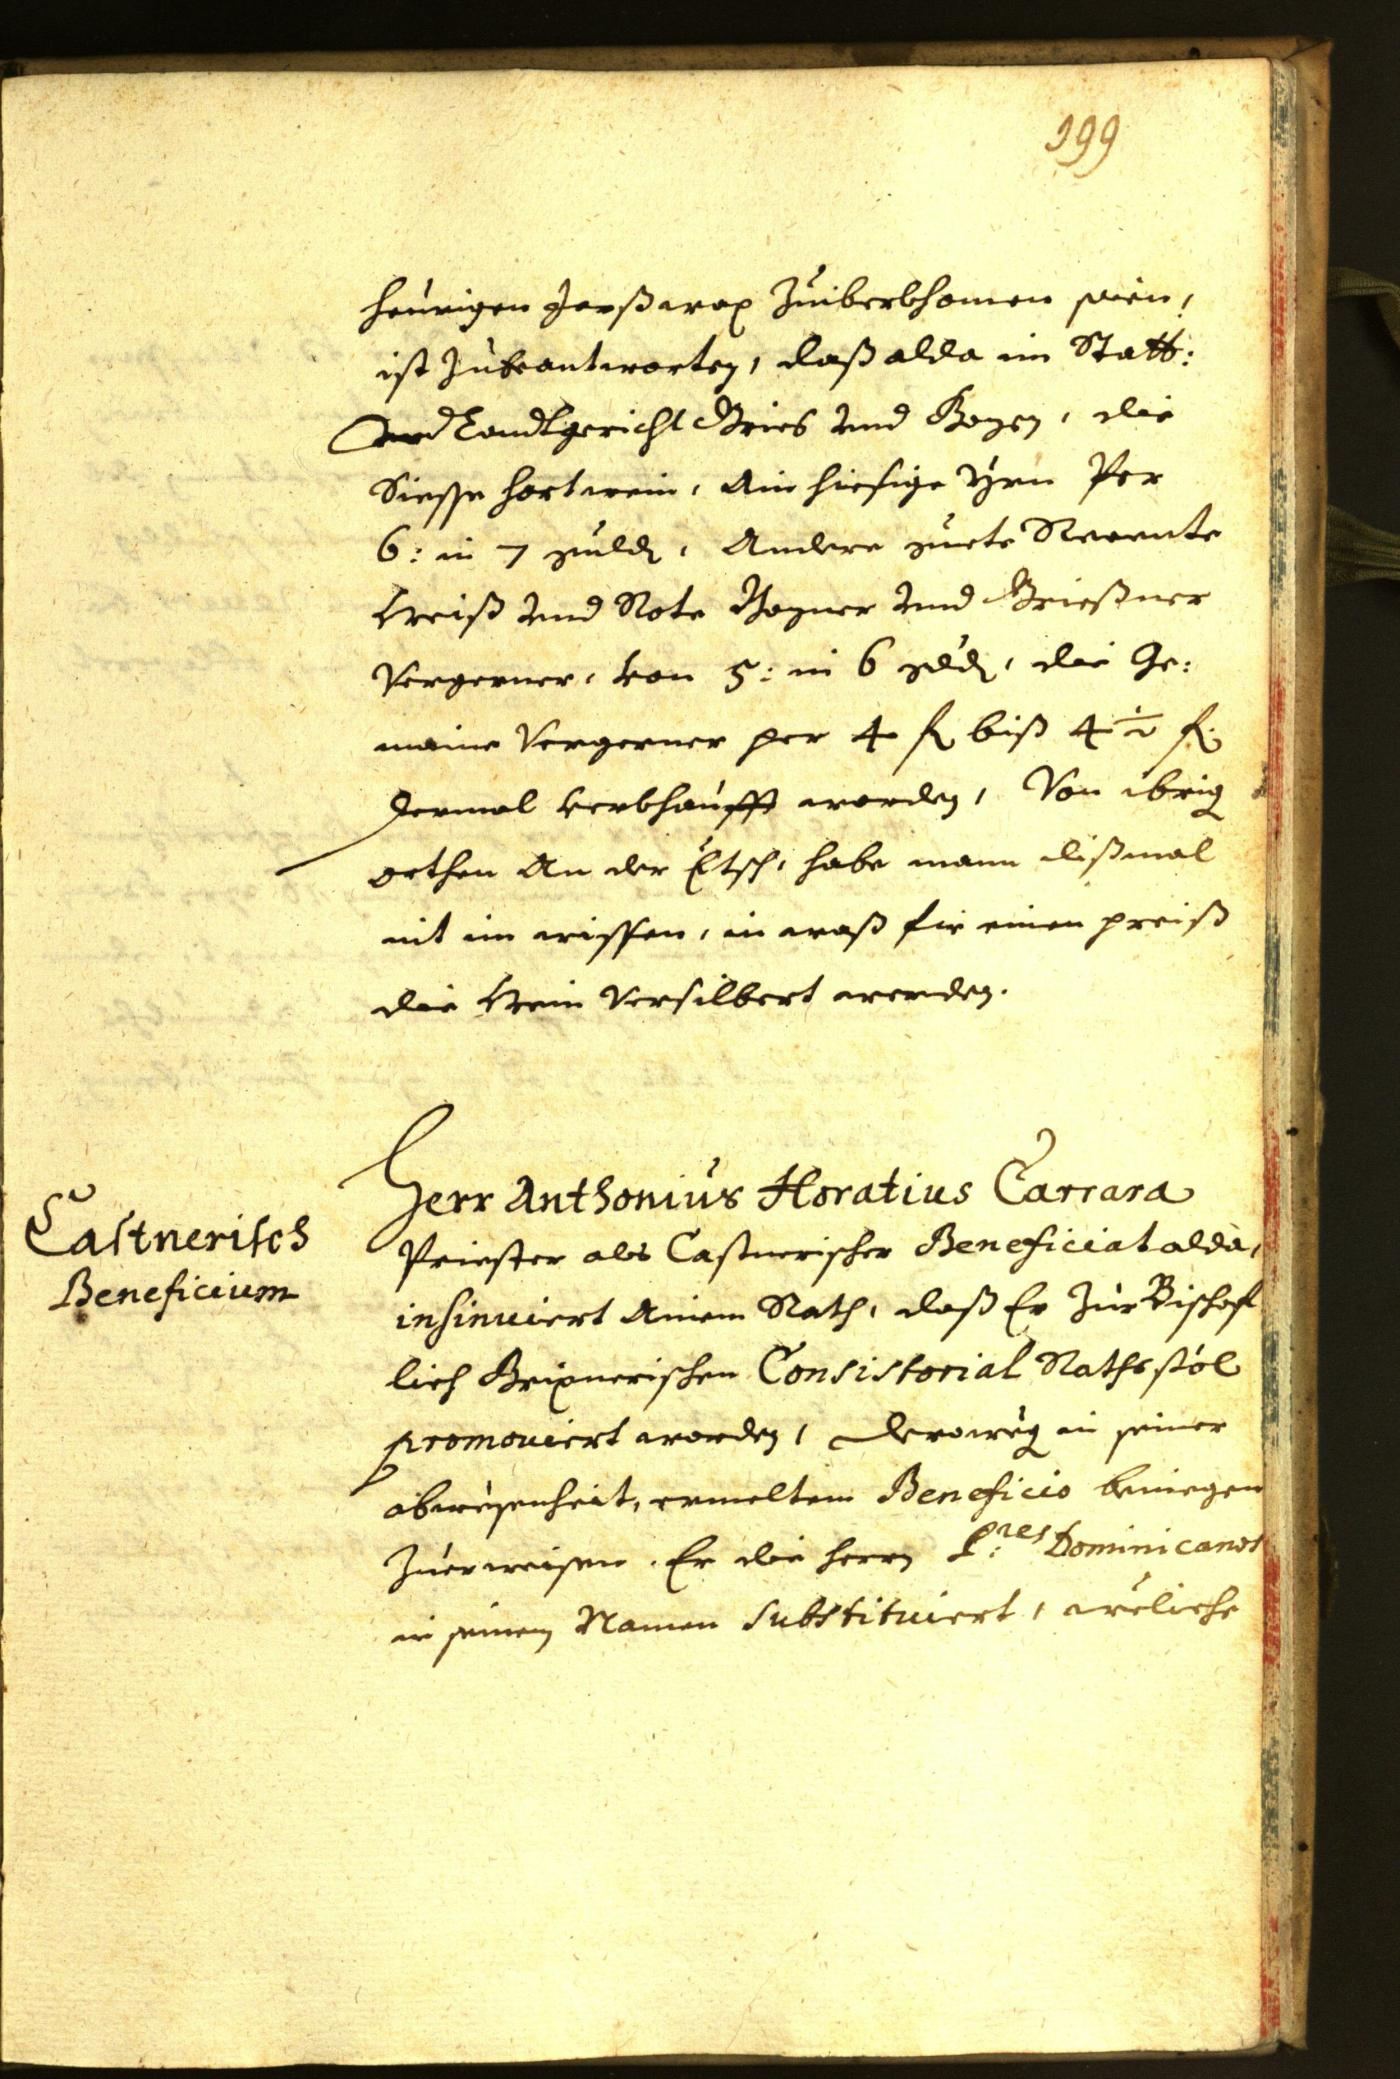 199
heurigen Jarßwax Zuiberkhomen seien,
ist Zubeantworten, daß alda im Statt:
und Landtgericht Gries und Bozen, die
Siesse hortwein, Ain hiesige Yrn Per
6: in 7 guldn, Andere guete
Weiß und Rote Bozner und Grießner
Vergerner, von 5: in 6 gldn, die Ge:
maine Vergerner per 4 fl biß 4 ½ fl.
dermal verkhaufft worden, Von ibrig
orthen An der Etsch, habe mann dißmal
nit im wissen, in waß fir einen preiß
die Wein Versilbert werden.
Castnerisch
Beneficium
Herr Anthonius Horatius Carrara
Priester als Castnerischer Beneficiat alda,
insinuiert Ainem Rath, daß Er Zur Bischof
lich Brixnerischen Consistorial Rathsstöl
promoviert worden, deroweg in seiner
abwesenheit, ermeltem Beneficio
Zuerweisen. Er die herrn P:res Dominicanos
in seinem Namen substituiert, wöliche